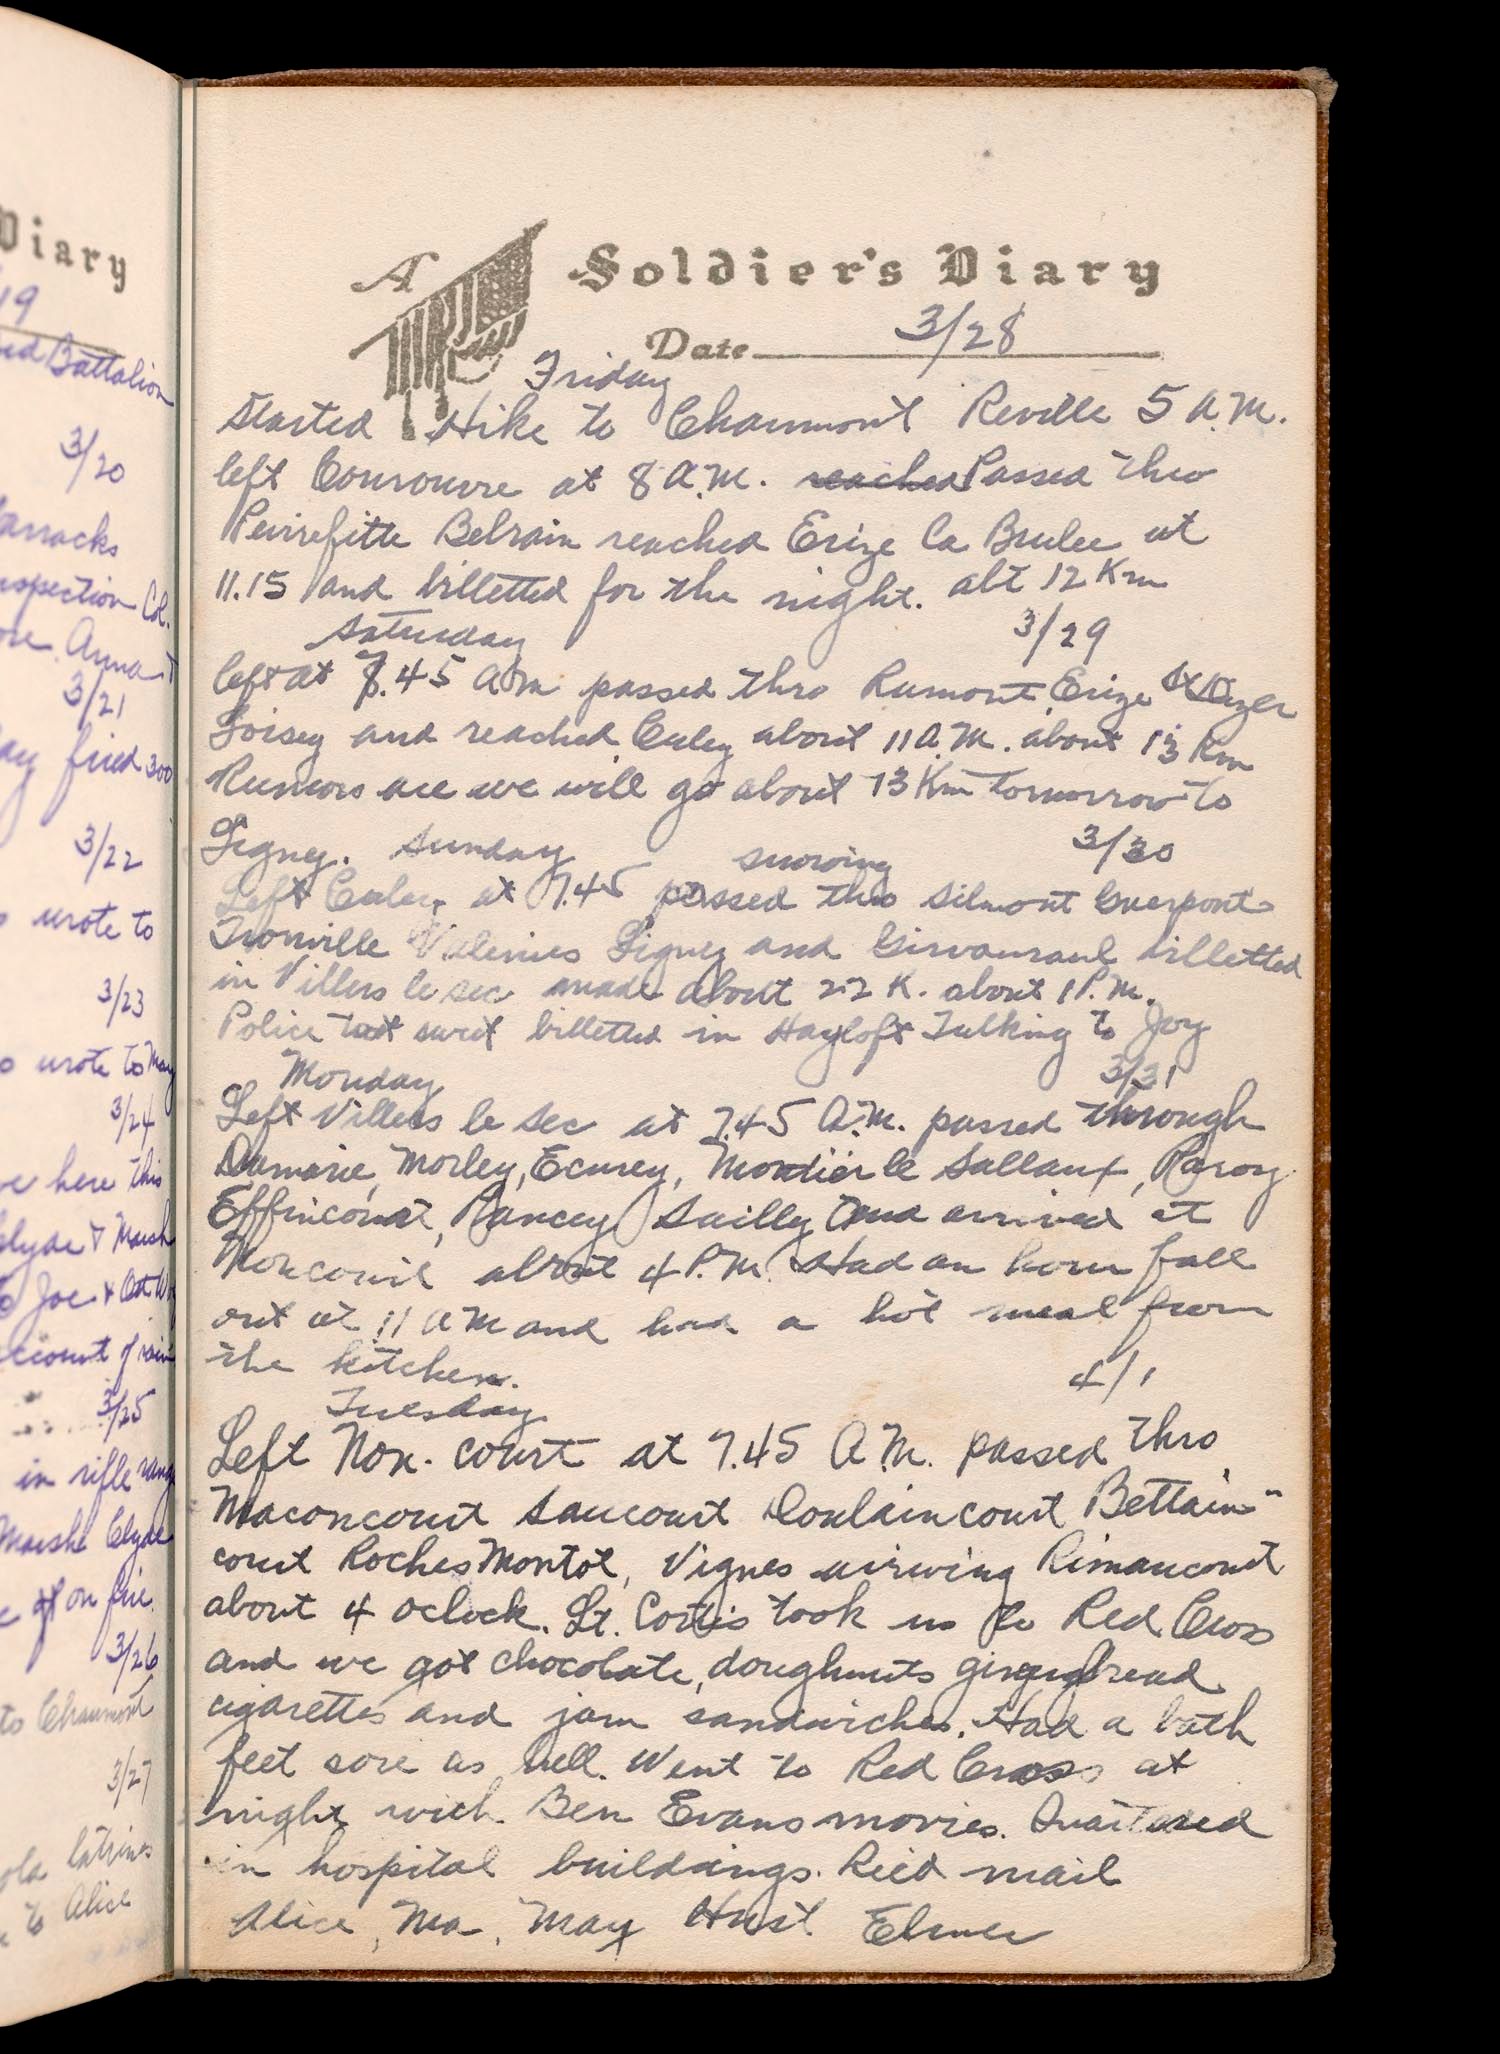 Diary
19
Battalion
3/20
Barracks
inspection Col.
Anna
3/21
fired 300
3/22
wrote to
3/23
wrote to May
3/24
here this
Clyde & Marsh
Joe &
account of rain
3/25
in rifle range
Marsh Clyde
on fire
3/26
to Chaumont
3/27
latrines
to Alice
A Soldier's Diary
Date 3/28
Friday
Started Hike to Chaumont Reville 5 A.M.
left Courouvre at 8 A.M. reached Passed thro
Peirrefitte Belrain reached Erize La Brulee at
11.15 and billetted for the night. abt 12 Km
Saturday 3/29
left at 7.45 A.M passed thro Rumont, Erize St Dizer
Loisey and reached Culey about 11 A.M. about 13 Km
Rumors are we will go about 13 Km tomorrow to
Ligney. Sunday snowing 3/30
Left Culey at 7.45 passed thro Silmont Guerpont
Tronville Velenies Ligney and Givauraul billetted
in Villers le sec made about 22 K. about 1 P.M.
Police billetted in Hayloft Talking to Joy
Monday 3/31
Left Villers le Sec at 7.45 A.M. passed through
Damarie, Morley, Ecurey, Montier le Sallaux, Paroy
Effincourt, Pancey Sailly and arrived at
Noncourt about 4 P.M. Had an hour fall
out at 11 AM and had a hot meal from
the kitchen. 4/1
Tuesday
Left Non. court at 7.45 A.M. passed thro
Maconcourt Saucourt Doulaincourt Bettain-
court Roches Montot, Vignes arriving Rimaucourt
about 4 oclock. Lt. Cortis took us to Red Cross
and we got chocolate, doughnuts gingerbread
cigarettes and jam sandwiches. Had a bath
feet sore as hell. Went to Red Cross at
night with Ben Evans movies. Quartered
in hospital buildings. Recd mail
Alice, Ma, May Elmer